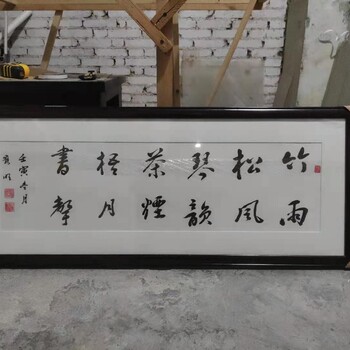 竹雨
松風
琴韻
茶煙
梧月
書聲
壬寅冬月